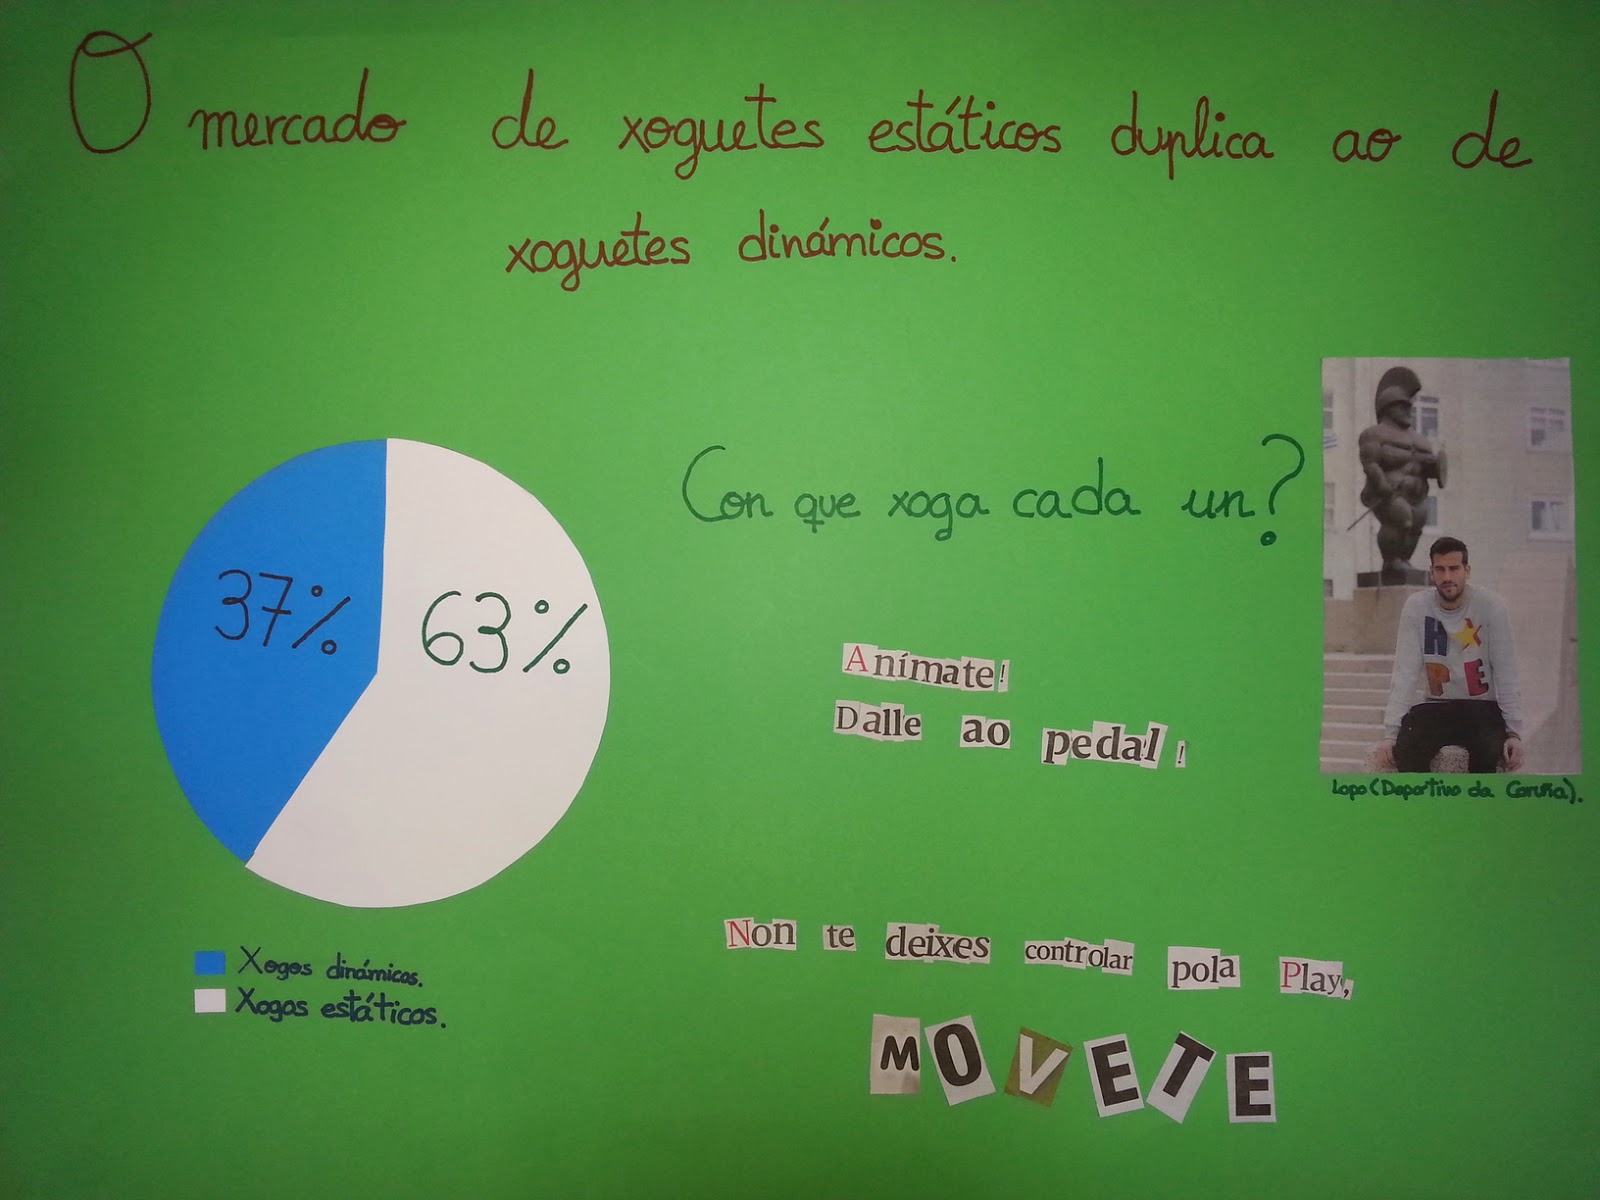 O mercado de xoguetes estáticos duplica ao de
xoguetes dinámicos.
Con que xoga cada un?
37%
63%
H★
PE
Anímate!
Dalle ao pedal!
Lopo (Deportivo da Coruña).
Non te deixes controlar pola Play,
MOVETE
Xogos dinámicos.
Xogos estáticos.